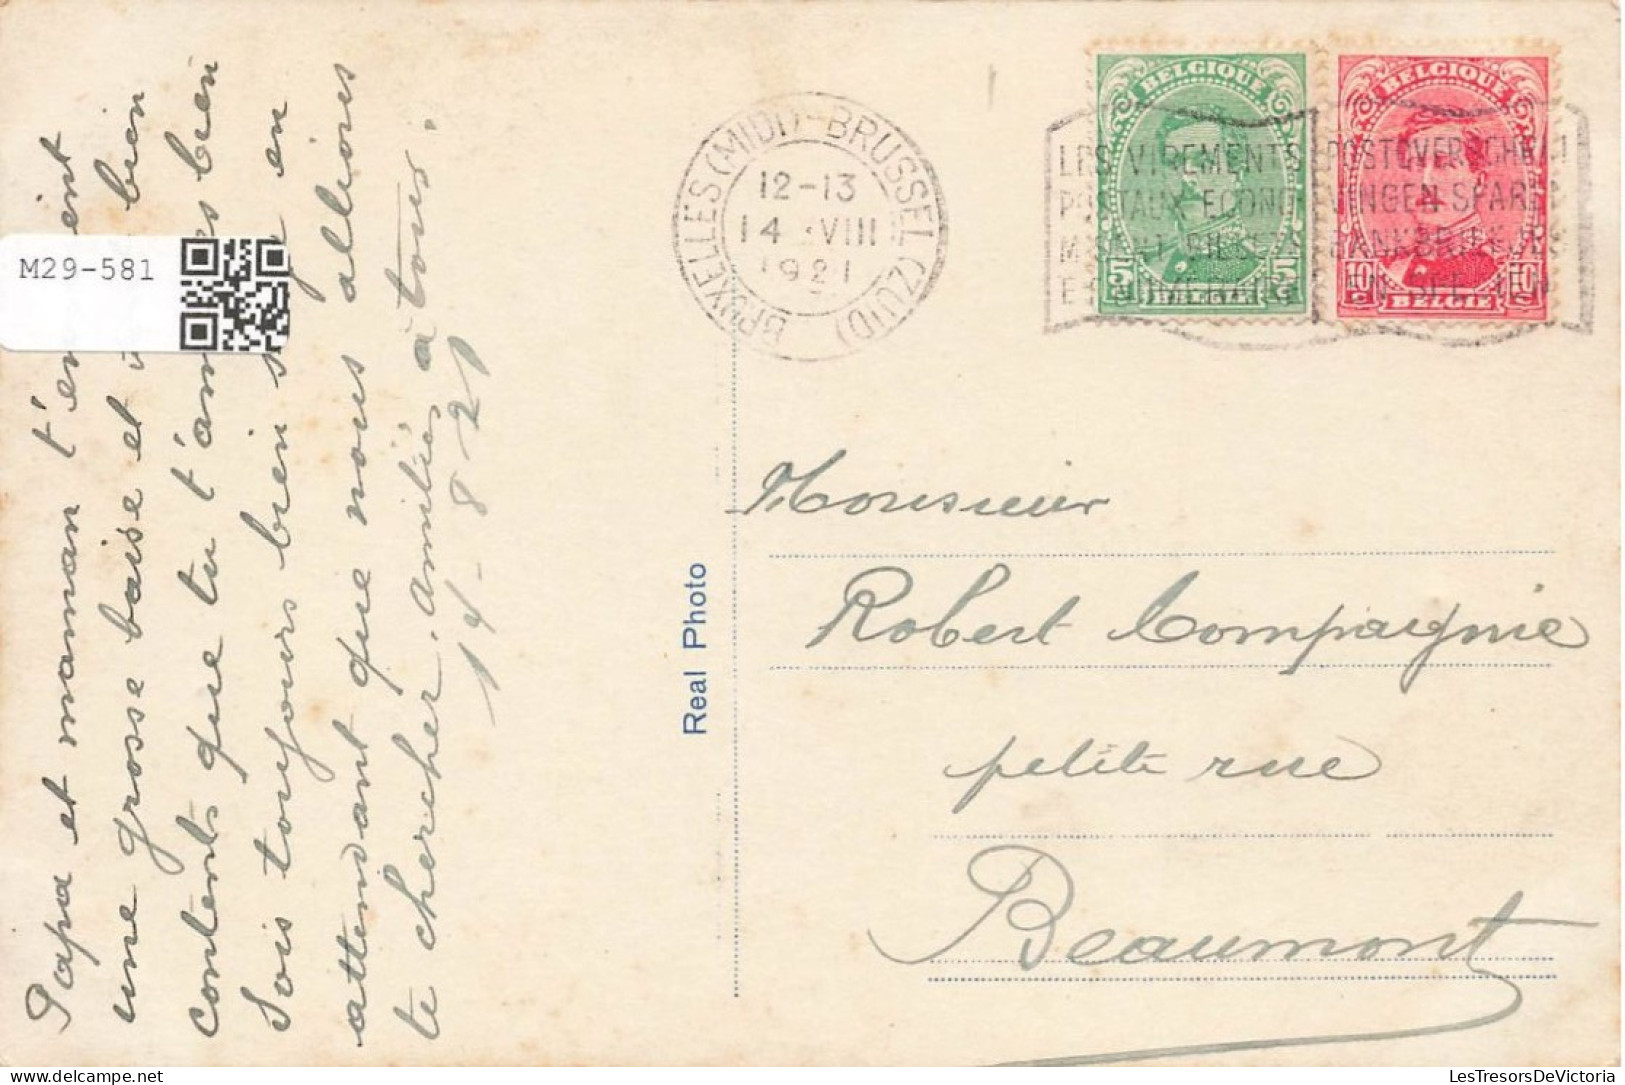 Papa et maman t'en ent
une grosse baise et bien
contents que tu t'am es bien
Sois toujours bien s en
attendant que nous allions
te chercher. amitiés à tour.
14-8-21
M29-581
BRUXELLES (MIDI) - BRUSSEL (ZUID)
12-13
14 VIII
1921
LES VIREMENTS
POSTAUX ECONO
MISENT BILLETS
ET NUMERAIRE
POSTOVERSCHRIJ
VINGEN SPAREN
BANKBRIEFJES
EN
BELGIQUE
5 c 5 c
BELGIE
BELGIQUE
10 c 10 c
BELGIE
Real Photo
Monsieur
Robert Compagnie
petite rue
Beaumont
LesTresorsDeVictoria